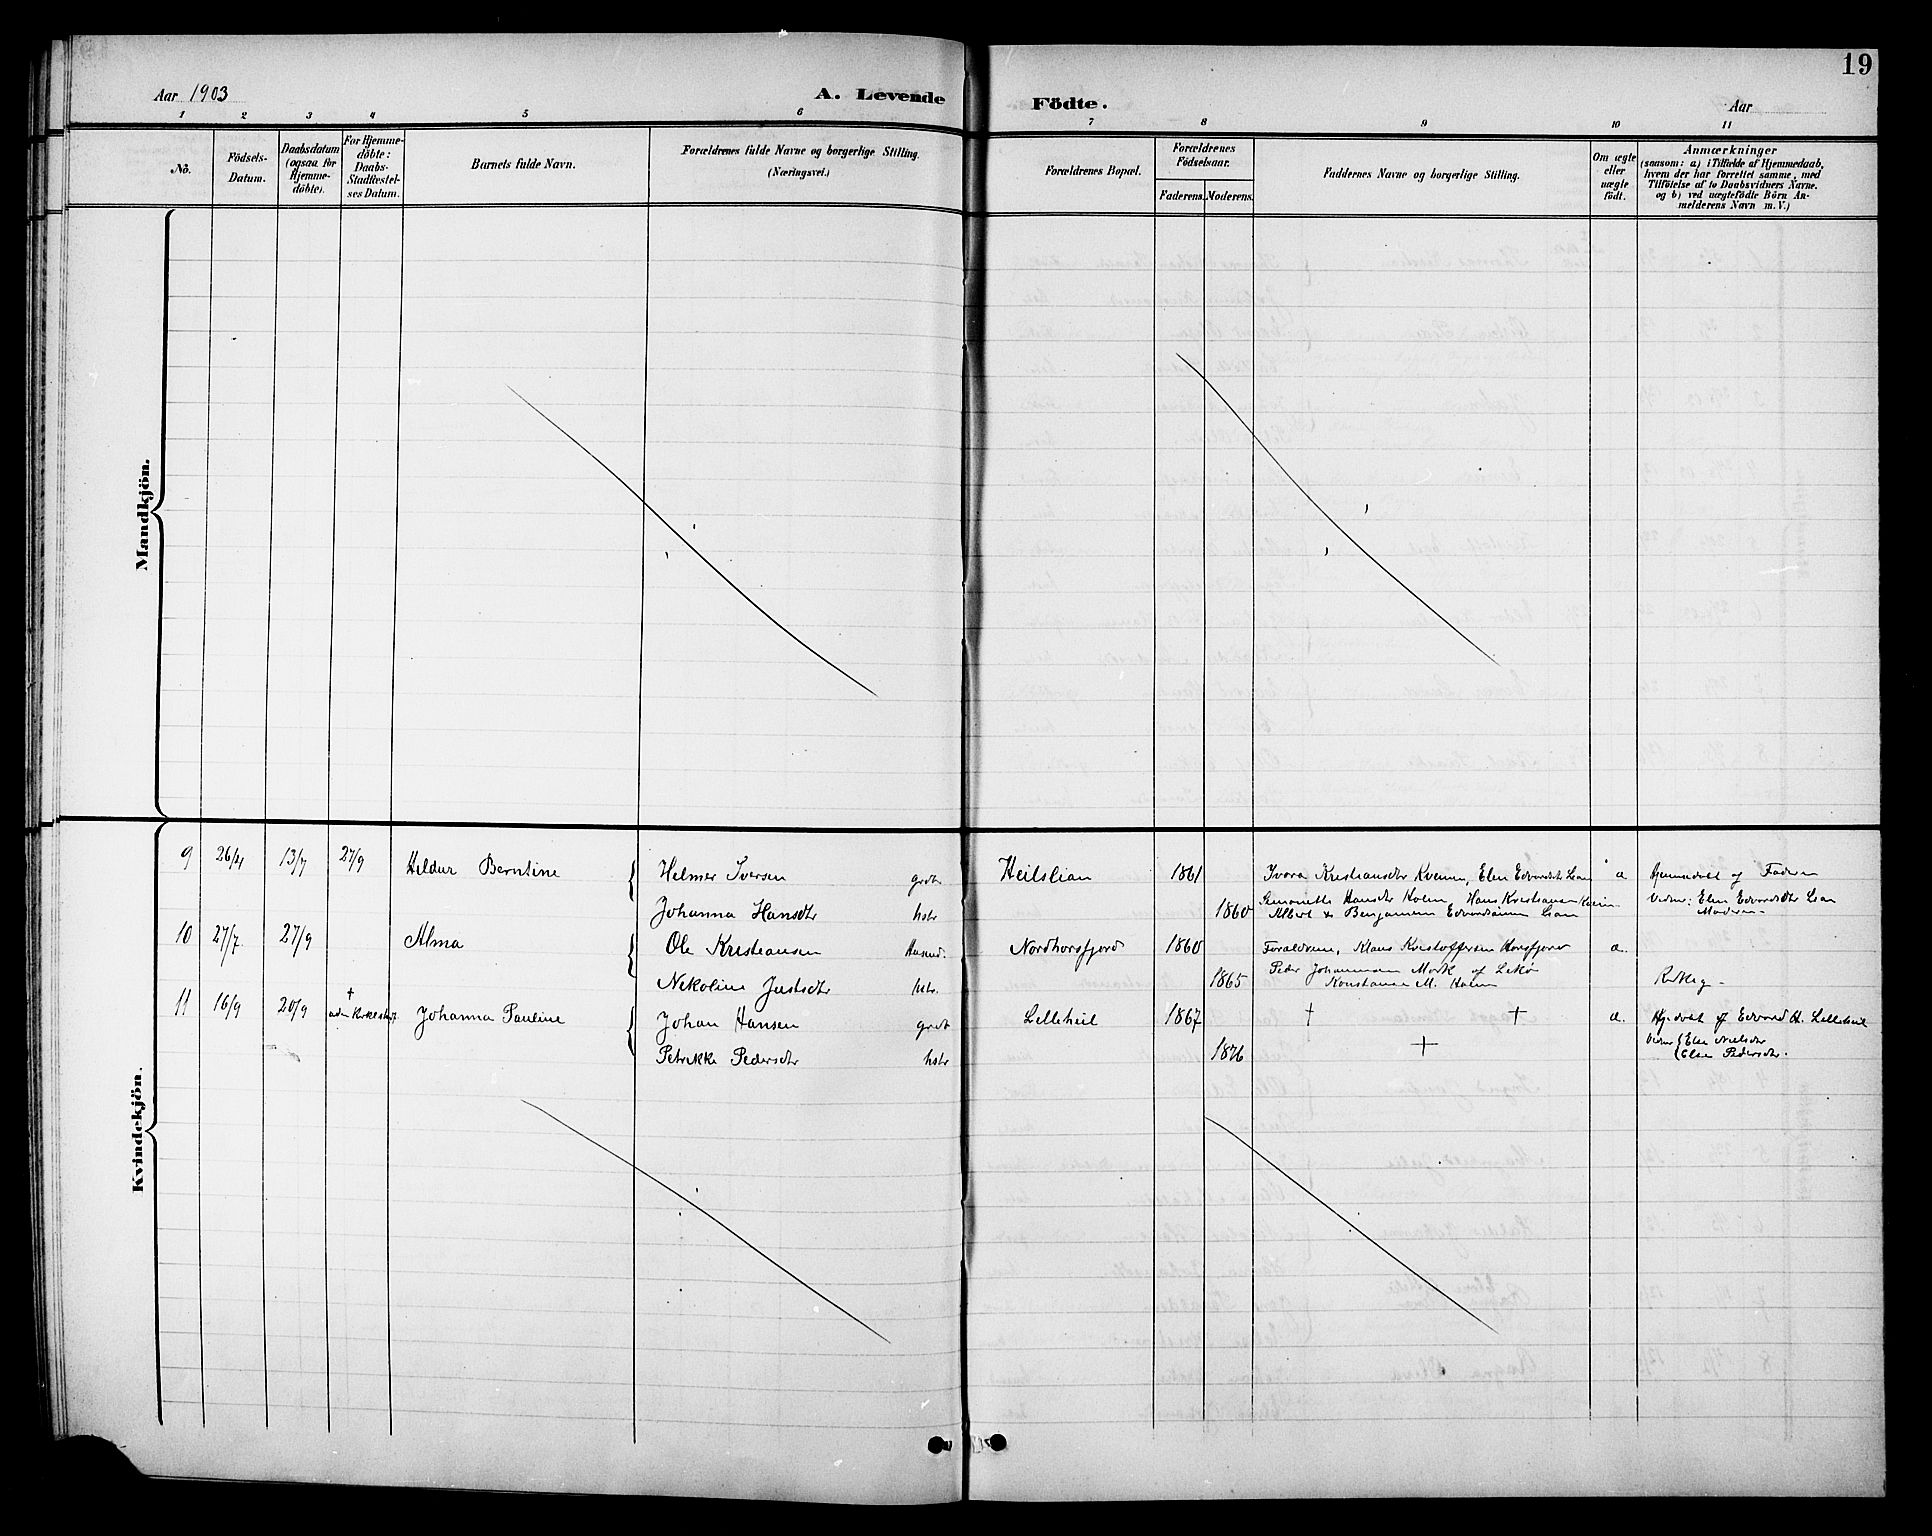 19
Aar 1903
A. Levende
Födte.
Aar
1 2 3 4 5 6 7 8 9 10 11
No.
Födsels-
Datum.
Daabsdatum
(ogsaa for
Hjemme-
döbte).
For Hjemme-
döbte:
Daabs-
Stadfæstel-
ses Datum.
Barnets fulde Navn.
Forældrenes fulde Navne og borgerlige Stilling.
(Næringsvei.)
Forældrenes Bopæl.
Forældrenes
Födselsaar.
Faderens. Moderens.
Faddernes Navne og borgerlige Stilling.
Om ægte
eller
uægte
födt.
Anmærkninger
(saasom: a) i Tilfælde af Hjemmedaab,
hvem der har forrettet samme, med
Tilföielse af to Daabsvidners Navne.
og b) ved uægtefödte Börn An-
melderens Navn m.V.)
Mandkjön.
Kvindekjön.
9 26/4 13/7 27/9 Hildur Berntine Helmer Iversen grdbr Heilslian 1861 Ivora Kristiansdtr Kvennu, Elen Edvardsdtr Lian a Hjemmedøbt af Faderen
Johanna Hansdtr hstr 1860 Simonette Hansdtr Holm, Hans Kristiansen Kvennu
Albert & Benjamin Edvardsønner Lian
Vidner: Elen Edvardsdtr Lian
Moderen
10 27/7 27/9 Alma Ole Kristiansen Husmd. Nordhorsfjord 1860 Forældrene, Klaus Kristoffersen Horsfjord a.
Nikoline Justsdtr hstr. 1865 Peder Johannesen Mork af Lekø
Konstanse M. Holm
11 16/9 20/9 † uden Kirkestadf. Johanna Pauline Johan Hansen grdbr Lilleheil 1867 † † a. Hjdøbt af Edvard H. Lilleheil
Petrikke Pedersdtr hstr 1876 †
Vidner Elen Nielsdtr
Elen Pedersdtr.